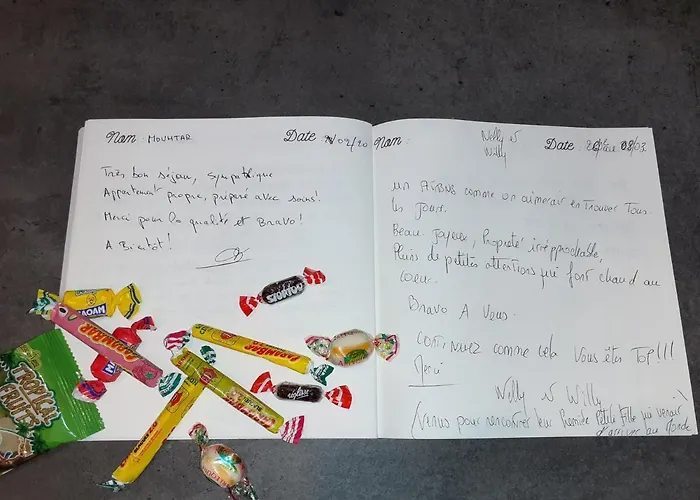 Nom: MOUHTAR
Date: /02/20
Très bon séjour, sympathique
Appartement propre, préparé avec soins!
Merci pour la qualité et Bravo!
A Bientôt!
Nom:
Nelly et
Willy
Date: 03
un AIRBNB comme on aimerait en Trouver Tous
les jours.
Beau. Joyeux, Propreté irréprochable,
Pleins de petites attentions qui font chaud au
coeur.
Bravo A Vous.
CONTINUEZ comme cela Vous êtes Top!!!
Merci
Nelly et Willy
(Venus pour rencontrer leur Première Petite Fille qui venait
d'arriver au Monde
CARAMBAR
CARAMBAR
TROPICAL
FRUITS
réglisse